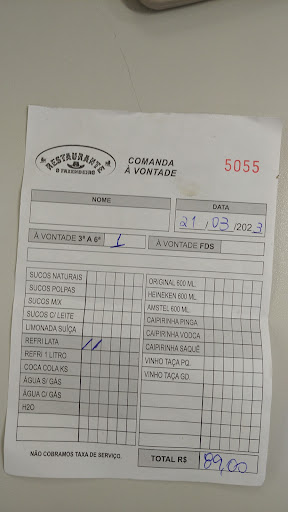 RESTAURANTE
O FAZENDEIRO
COMANDA
À VONTADE
5055
NOME
DATA
21/03/2023
À VONTADE 3ª A 6ª 1 À VONTADE FDS
SUCOS NATURAIS
SUCOS POLPAS
SUCOS MIX
SUCOS C/ LEITE
LIMONADA SUÍÇA
REFRI LATA //
REFRI 1 LITRO
COCA COLA KS
ÁGUA S/ GÁS
ÁGUA C/ GÁS
H2O
ORIGINAL 600 ML.
HEINEKEN 600 ML.
AMSTEL 600 ML.
CAIPIRINHA PINGA
CAIPIRINHA VODCA
CAIPIRINHA SAQUÊ
VINHO TAÇA PQ.
VINHO TAÇA GD.
NÃO COBRAMOS TAXA DE SERVIÇO.
TOTAL R$ 89,00